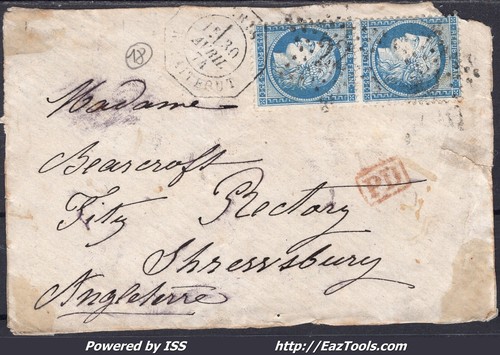 30
AVRIL
74
18
PD
Madame
Bearcroft
Fitz Rectory
Shrewsbury
Angleterre
Powered by ISS
http://EazTools.com